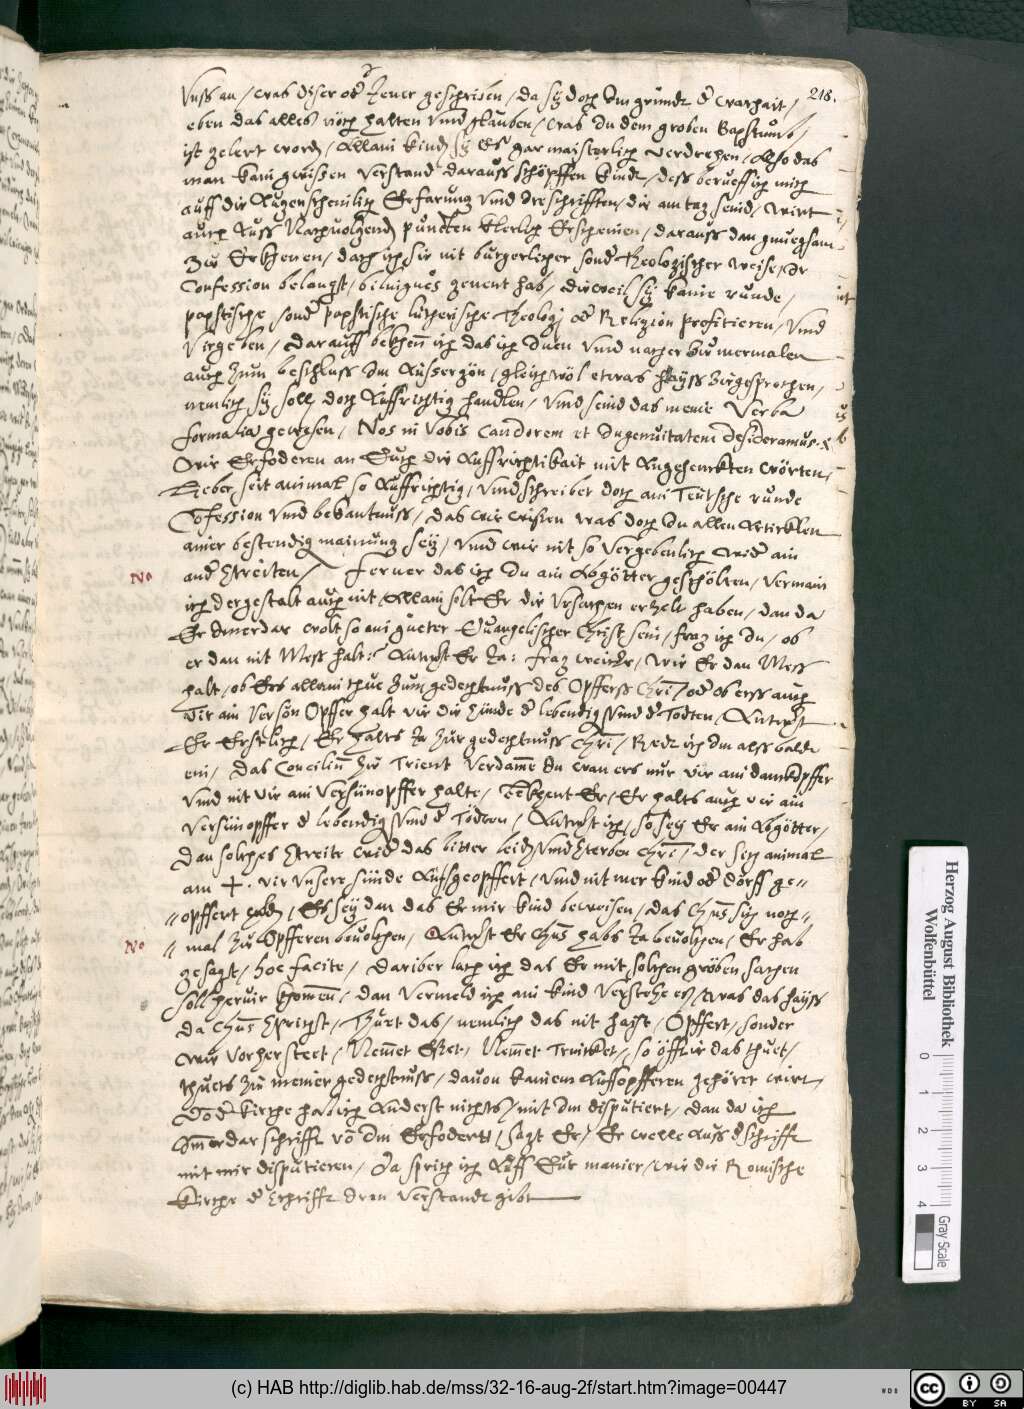 218.
vnss an / was diser oder Jener geschriben / da sy doch Im grundt d warhait /
eben das alles nich halten vnnd glauben / was du dem groben Bapstumb /
ist gelert word / Allain kind sy Es gar maisterlich verdrehen / Also das
man kain gwissen verstand darauss schöpffen kindt / dess berueff ich mich
auff die Augenscheinlich Erfarung vnnd die schrifften / die am tag seind / wirt
auch Auss Nachuolgend puncten klerlich Erscheinen / darauss dan gnuegsam
zu Erkhenen / dass ich sie nit burgerlicher sond Theologischer weise / Ir
Confession belangst / bilingues genent hab / dieweil sy kaine runde /
papstische sond papstische lutherische Theologi od Religion profitieren / vnnd
virgeben / darauff bekhenn ich das ich Inen vnnd nacher zu mermalen
auch zum beschluss Im Aussergön / gleichwol etwas hayss zugesprochen /
nemlich sy soll doch Auffrichtig handlen / vnnd seind das meine Verba
formalia gewesen / Nos in vobis candorem et Ingenuitatem desideramus. &
Wir Erfoderen an Euch die Auffrichtikait mit Angehenckten worten /
Lieber seit ainmal so Auffrichtig / vnnd schreibet doch ain Teutsche runde
Cofession vnnd bekantnuss / das wir wissen was doch In allen Articklen
ainer bestendig mainung sey / vnnd wir nit so vergebenlich wid ain
and streiten / Ferner das ich In ain Abgötter gescholten / vermain
No
ich dergestalt auch nit / Allain solt Er die vrsachen erzelt haben / dan da
Er Imerdar wolt so ain gueter Euangelischer Christ sein / frag ich In / ob
er dan nit Mess halt? Antwort Er Ja: frag weiter / wie Er dan Mess
halt / ob Ers allain thue zum gedechtnuss des Opfferss Chri / od ob erss auch
vir ain verson Opffer halt vir die sünde d lebendig vnnd d Todten / Antwort
Er Erstlich / Er halts Ja zur gedechtnuss Chri / Redt ich Im alss baldt
ein / das Concilium zu Trient verdamme In wan ers nur vir ain danckopffer
vnnd nit vir ain versünopffer halte / Bekhent Er / Er halts auch vir ain
versünopffer d lebendig vnnd d Todten / Antwort ich / so sey Er ain Abgötter /
dan solches streite wid das bitter leid vnnd sterben Chri / der sich ainmal
am + . vir vnsere sünde Aufgeopffert / vnnd nit mer kind od dörff ge=
=opffert werd / Es sey dan das Er mir kind beweisen / das Chus sich noch=
No
= mal zu Opfferen beuolchen / Antwort Er Chus habs Ja beuolchen / Er hab
gesagt / hoc facite / dariber lach ich das Er mit solchen groben sachen
soll hervir khomen / dan vermeld ich ain kind verstehe es / was das hayss
da Chus spricht / Thuet das / nemlich das nit haist / Opffert / sonder
wie vorher steet / Nemet Esset / Nemet Trincket / so offt ir das thuet /
thuets zu meiner gedechtnuss / dauon kainem Auffopfferen gehöret wirt /
Vo d kirche hab ich Anderst nichts / mit Im disputiert / dan da ich
Imerdar schrifft vo Im Erfodert / sagt Er / Er welle Auss d schrifft
mit mir disputieren / Da sprich ich Auff Eur manier / wie die Romische
Kirche d schrifft dren verstandt gibt
Herzog August Bibliothek
Wolfenbüttel
0 1 2 3 4
Gray Scale
(c) HAB http://diglib.hab.de/mss/32-16-aug-2f/start.htm?image=00447
WDB
cc BY SA